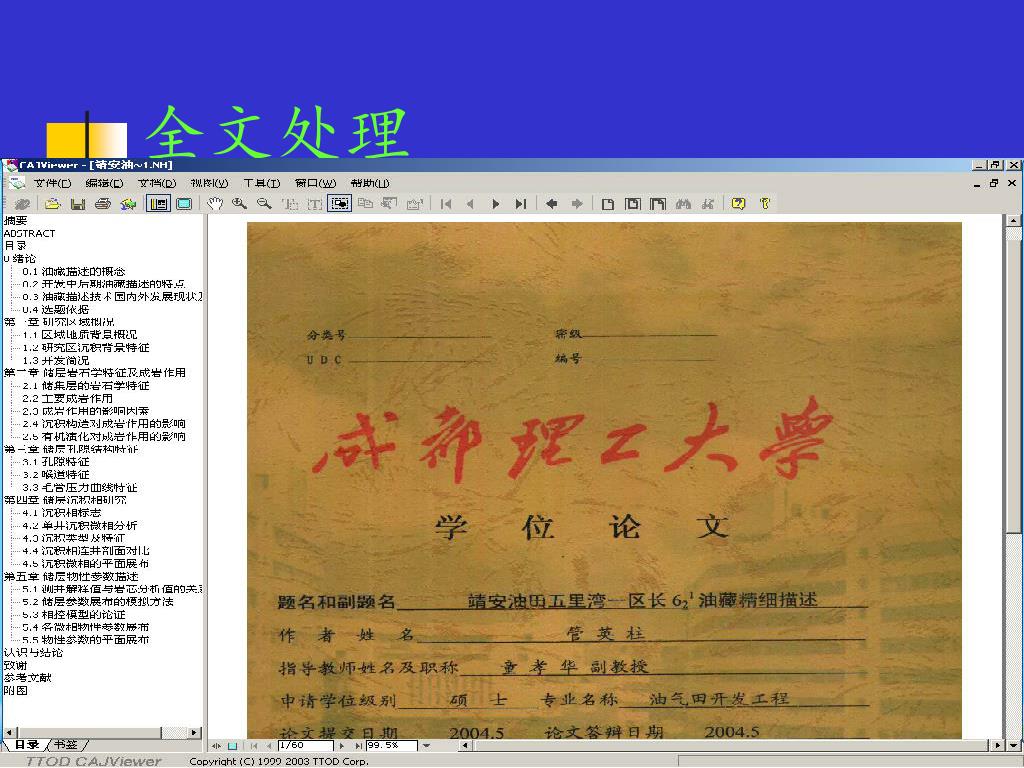 全文处理
CAJViewer - [靖安油~1.NH]
文件(F) 编辑(E) 文档(D) 视图(V) 工具(T) 窗口(W) 帮助(H)
摘要
ABSTRACT
目录
0 绪论
0.1 油藏描述的概念
0.2 开发中后期油藏描述的特点
0.3 油藏描述技术国内外发展现状及
0.4 选题依据
第一章 研究区域概况
1.1 区域地质背景概况
1.2 研究区沉积背景特征
1.3 开发简况
第二章 储层岩石学特征及成岩作用
2.1 储集层的岩石学特征
2.2 主要成岩作用
2.3 成岩作用的影响因素
2.4 沉积构造对成岩作用的影响
2.5 有机演化对成岩作用的影响
第三章 储层孔隙结构特征
3.1 孔隙特征
3.2 喉道特征
3.3 毛管压力曲线特征
第四章 储层沉积相研究
4.1 沉积相标志
4.2 单井沉积微相分析
4.3 沉积类型及特征
4.4 沉积相连井剖面对比
4.5 沉积微相的平面展布
第五章 储层物性参数描述
5.1 测井解释值与岩芯分析值的关系
5.2 储层参数展布的模拟方法
5.3 相控模型的论证
5.4 各微相物性参数展布
5.5 物性参数的平面展布
认识与结论
致谢
参考文献
附图
目录 书签
分类号 密级
UDC 编号
成都理工大学
学位论文
题名和副题名 靖安油田五里湾一区长6₂¹油藏精细描述
作者姓名 管英柱
指导教师姓名及职称 童孝华副教授
申请学位级别 硕士 专业名称 油气田开发工程
论文提交日期 2004.5 论文答辩日期 2004.5
1/60 99.5%
TTOD CAJViewer Copyright (C) 1999 2003 TTOD Corp.